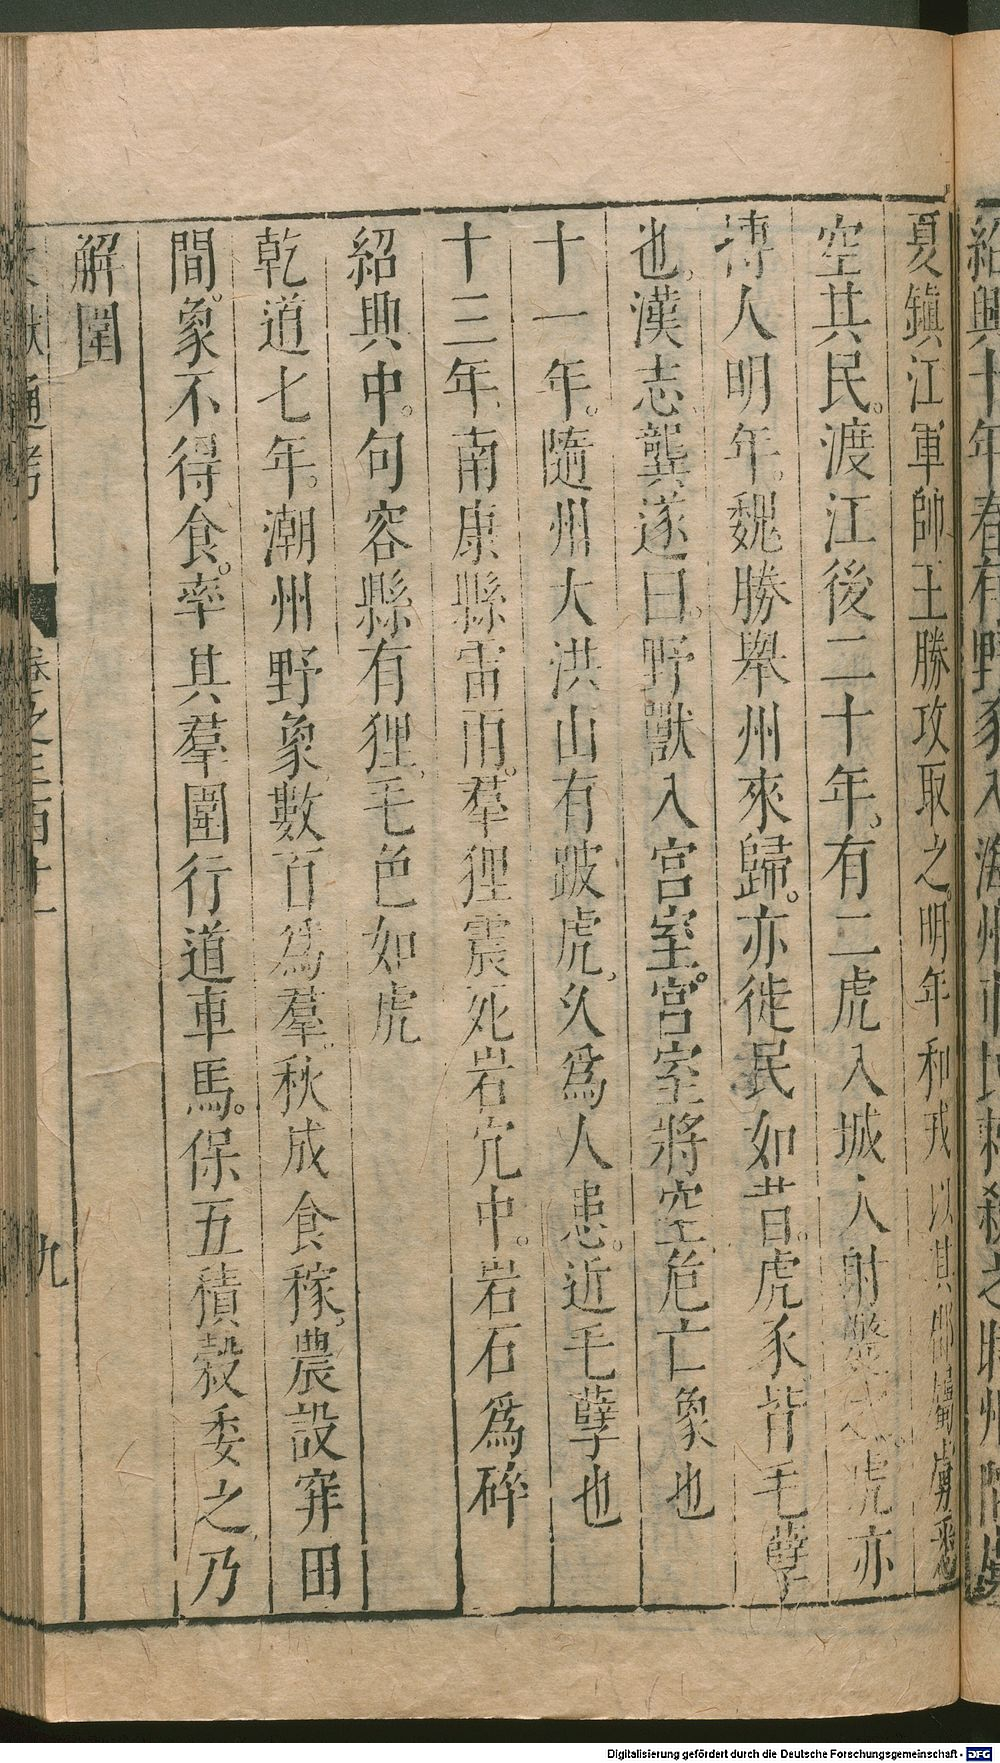 紹興十年春有野豕入海州市民刺殺之時州陷
夏鎮江軍帥王勝攻取之明年和戎以其郡屬虜悉
空其民渡江後二十年有二虎入城人射斃之虎亦
搏人明年魏勝舉州來歸亦徙民如昔虎豕皆毛孽
也漢志龔遂曰野獸入宮室宮室將空危亡象也
十一年隨州大洪山有跛虎久爲人患近毛孽也
十三年南康縣雷雨羣狸震死岩穴中岩石爲碎
紹興中句容縣有狸毛色如虎
乾道七年潮州野象數百爲羣秋成食稼農設穽田
間象不得食率其羣圍行道車馬保五積穀委之乃
解圍
通考 卷之三百十一 九
Digitalisierung gefördert durch die Deutsche Forschungsgemeinschaft - DFG